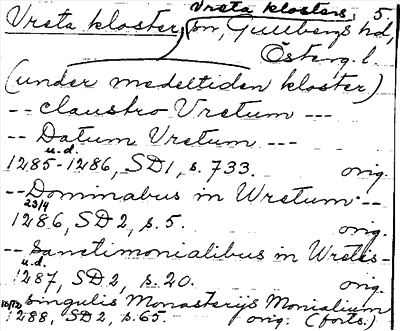 Vreta klosters 5
Vreta kloster, sn, Gullbergs hd,
Österg. l.
(under medeltiden kloster)
-- claustro Vretum ---
-- Datum Vretum ---
u.d.
1285-1286, SD1, s. 733. orig.
-- Dominabus in Wretum --
23/4
1286, SD2, s. 5. orig.
-- Sanctimonialibus in Wretis-
u.d.
1287, SD2, s. 20. orig.
singulis Monasterijs Monialium
1288, SD2, s. 65. orig. (forts.)